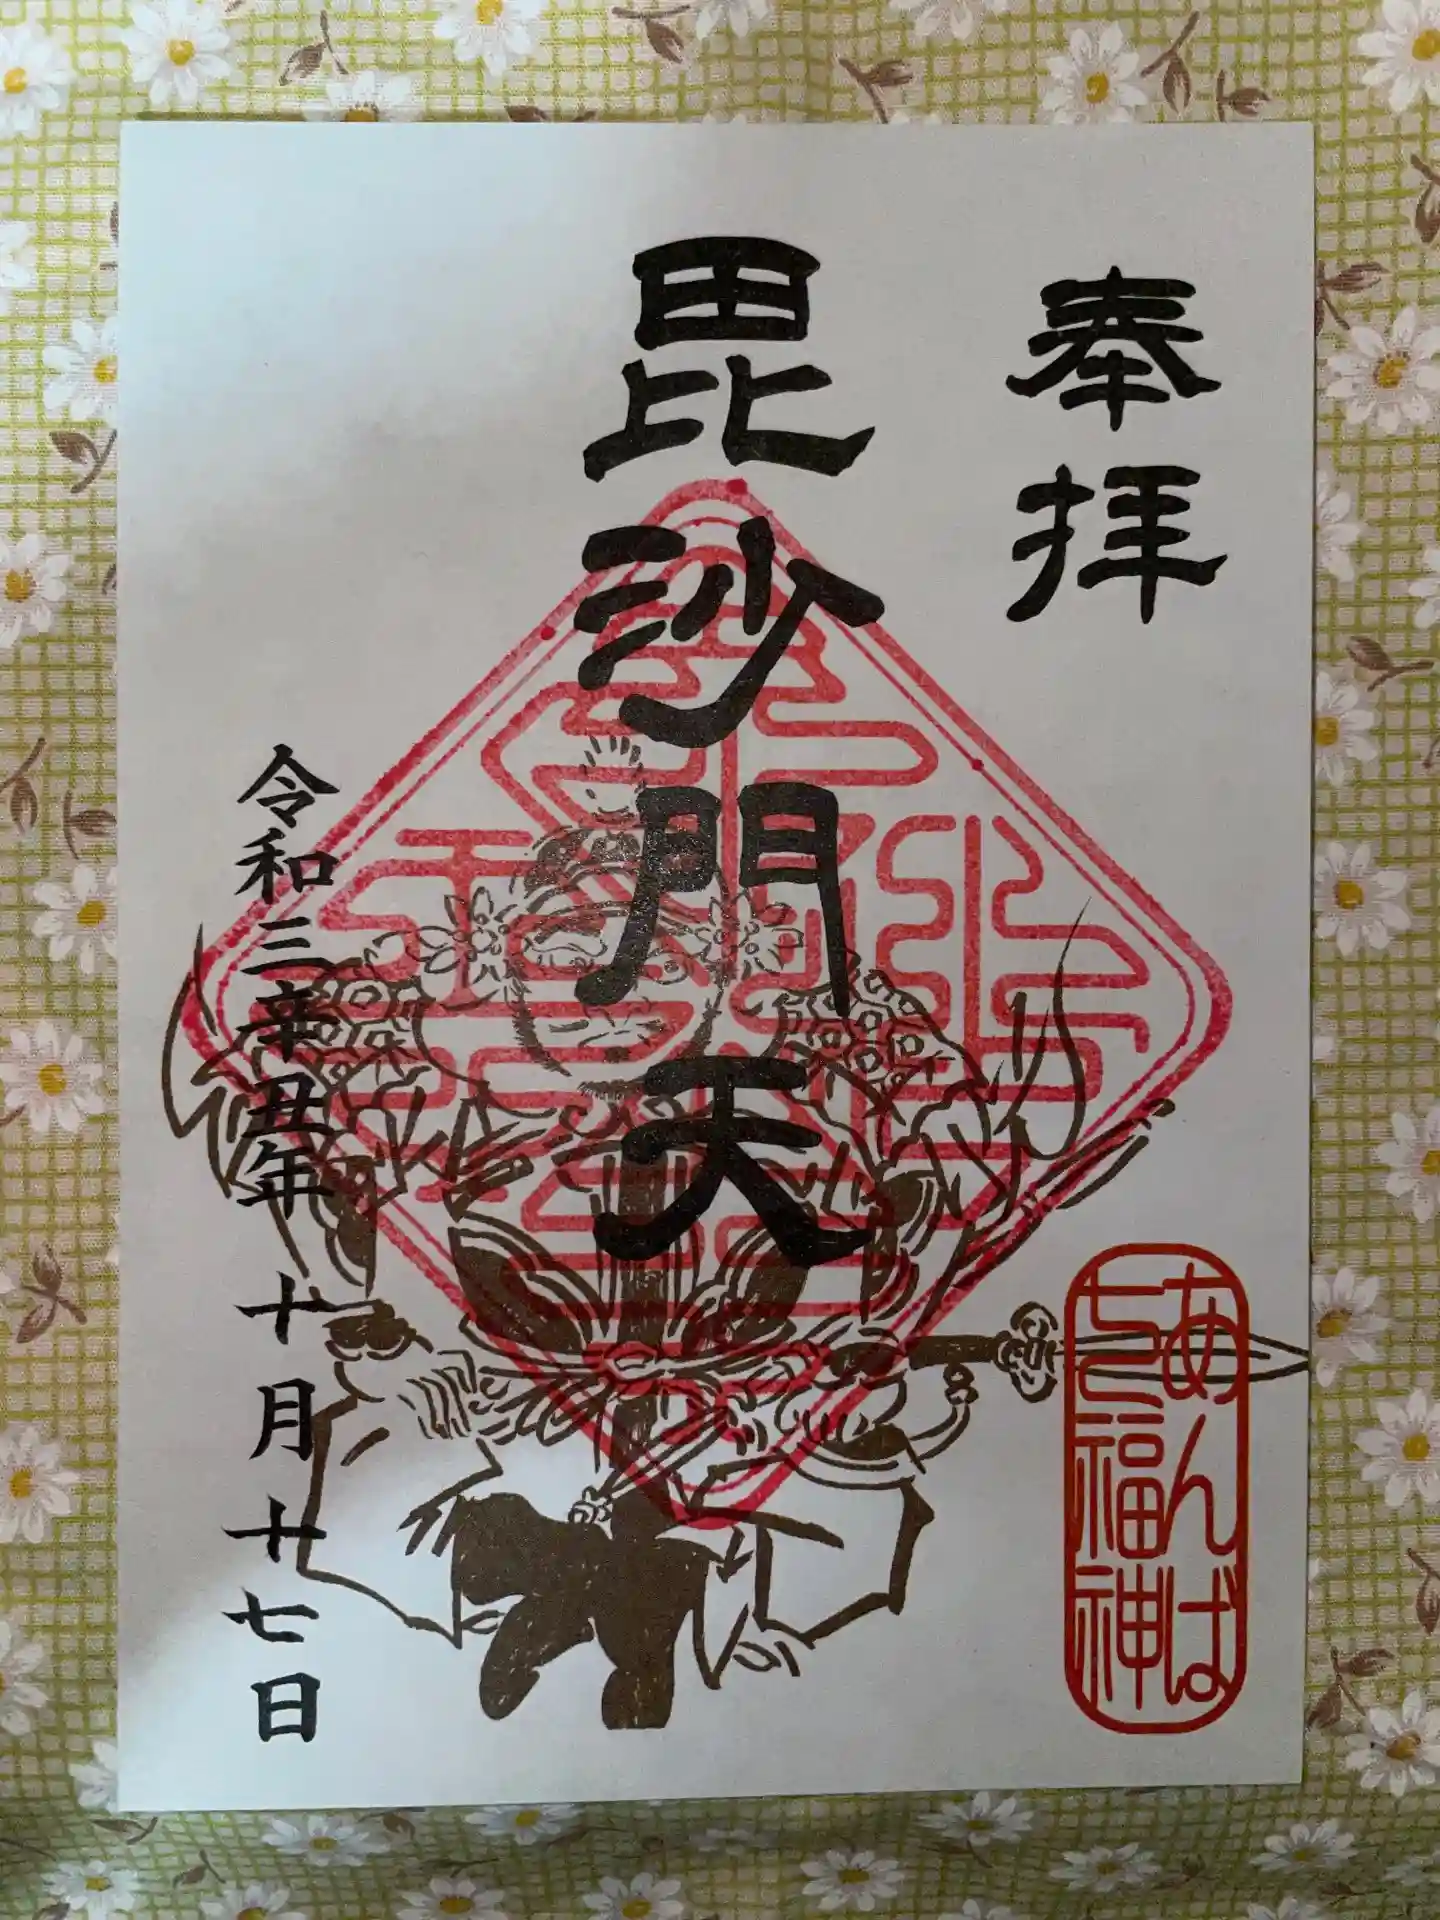 奉拝
毘沙門天
令和三辛丑年十月十七日
あんば
七福神